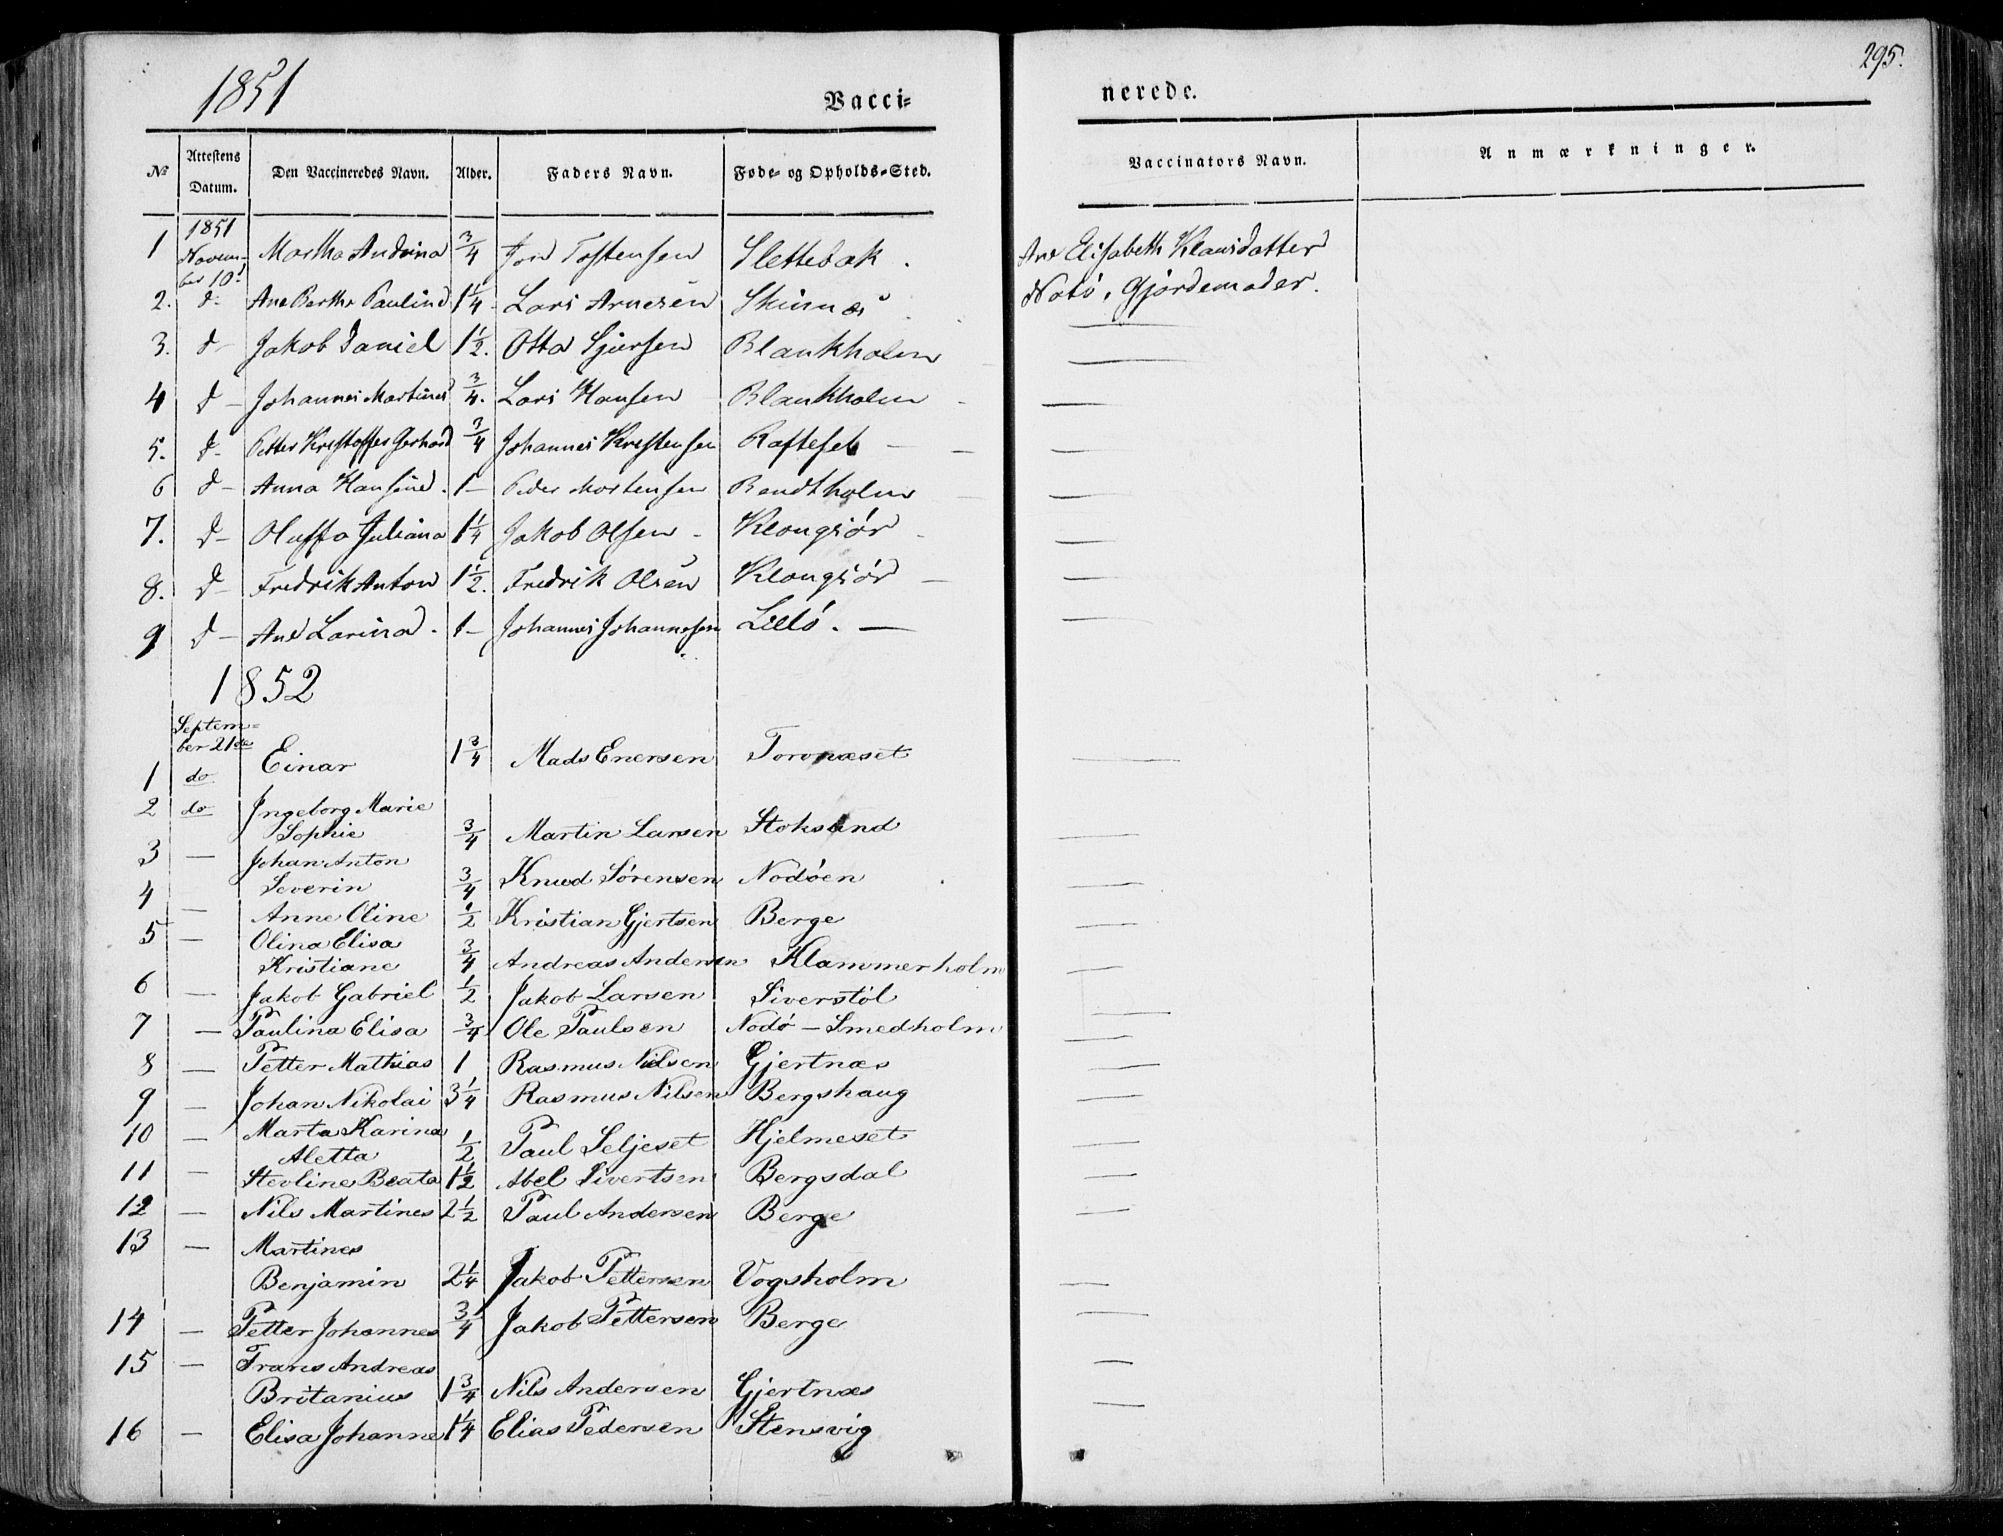 1851
Vacci-
nerede.
295.
No Attestens Datum. Den Vaccineredes Navn. Alder. Faders Navn. Føde- og Opholds-Sted. Vaccinators Navn. Anmærkninger.
1851
1 Novem-ber 10d Martha Andrina 3/4 Jon Tostensen Slettebak. Ane Elisabeth Klausdatter
2. d- Ane Berthe Paulina 1 1/4 Lars Arnesen Notö, Gjordemoder.
3. d- Jakob Daniel 1 1/2. Otto Sjursen Blankholm —
4 d- Johannes Martinus 3/4. Lars Hansen Blankholm —
5. d- Petter Kristoffer Gerhard 3/4 Johannes Kristensen Rafteset —
6 d- Anna Hansine. 1- Peder Mortensen Bendtholm —
7. d- Oluffa Juliana 1 1/4 Jakob Olsen - —
8. d- Fredrik Anton 1 1/2. Fredrik Olsen —
9 d- Ane Larina. 1- Johannes Johannesen Lillö. —
1852
Septem-
ber 21de
1 do Einar 1 3/4 Mads Enersen Torvnæset —
2 do Ingeborg Marie
Sophie 3/4 Martin Larsen Stoksund —
3 — Johan Anton
Severin 3/4 Knud Sörensen Nodöen —
4 — Anne Oline 1/2 Kristian Gjertsen Berge —
5 — Olina Elisa
Kristiane 3/4 Andreas Andersen Klammerholm —
6 — Jakob Gabriel 1/2 Jakob Larsen Siverstöl —
7 — Paulina Elisa 3/4 Ole Paulsen Nodö — Smedholm —
8 — Petter Mathias 1 Rasmus Nilsen Gjertnæs —
9 — Johan Nikolai 3 1/4 Rasmus Nilsen Bergshaug —
10 — Marta Karina
Aletta 1/2 Paul Seljeset Hjelmeset —
11 — Stevline Beata 1 1/2 Abel Sivertsen Bergsdal —
12 — Nils Martines 2 1/2 Paul Andersen Berge —
13 — Martines
Benjamin 2 1/4 Jakob Pettersen Vogsholm —
14 — Petter Johannes 3/4 Jakob Pettersen Berge —
15 — Frans Andreas
Britanius 1 3/4 Nils Andersen Gjertnæs —
16 — Elisa Johanne 1 1/4 Elias Pedersen Stensvig —